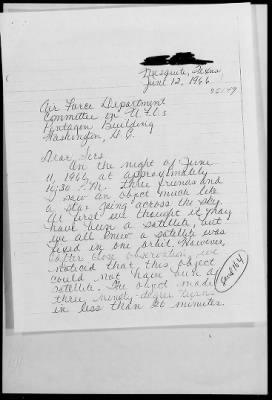 Mesquite, Texas
June 12, 1966
Air Force Department
Committee on U.F.O.s
Pentagon Building
Washington, D.C.
Dear Sirs,
On the night of June
11, 1966 at approximately
10:30 P.M. three friends and
I saw an object much like
a star going across the sky.
At first we thought it may
have been a satellite, but
we all knew a satellite was
fixed in one orbit. However,
after close observation, we
noticed that this object
could not have been a
satellite. The object made
three ninety-degree turns
in less than 20 minutes.